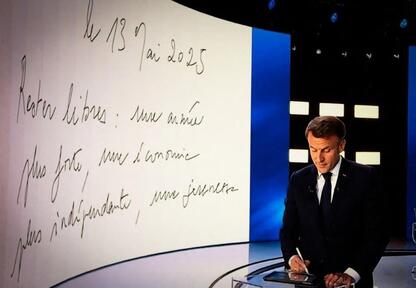 le 13 Mai 2025
Rester libres : une armée
plus forte, une économie
plus indépendante, une jeunesse